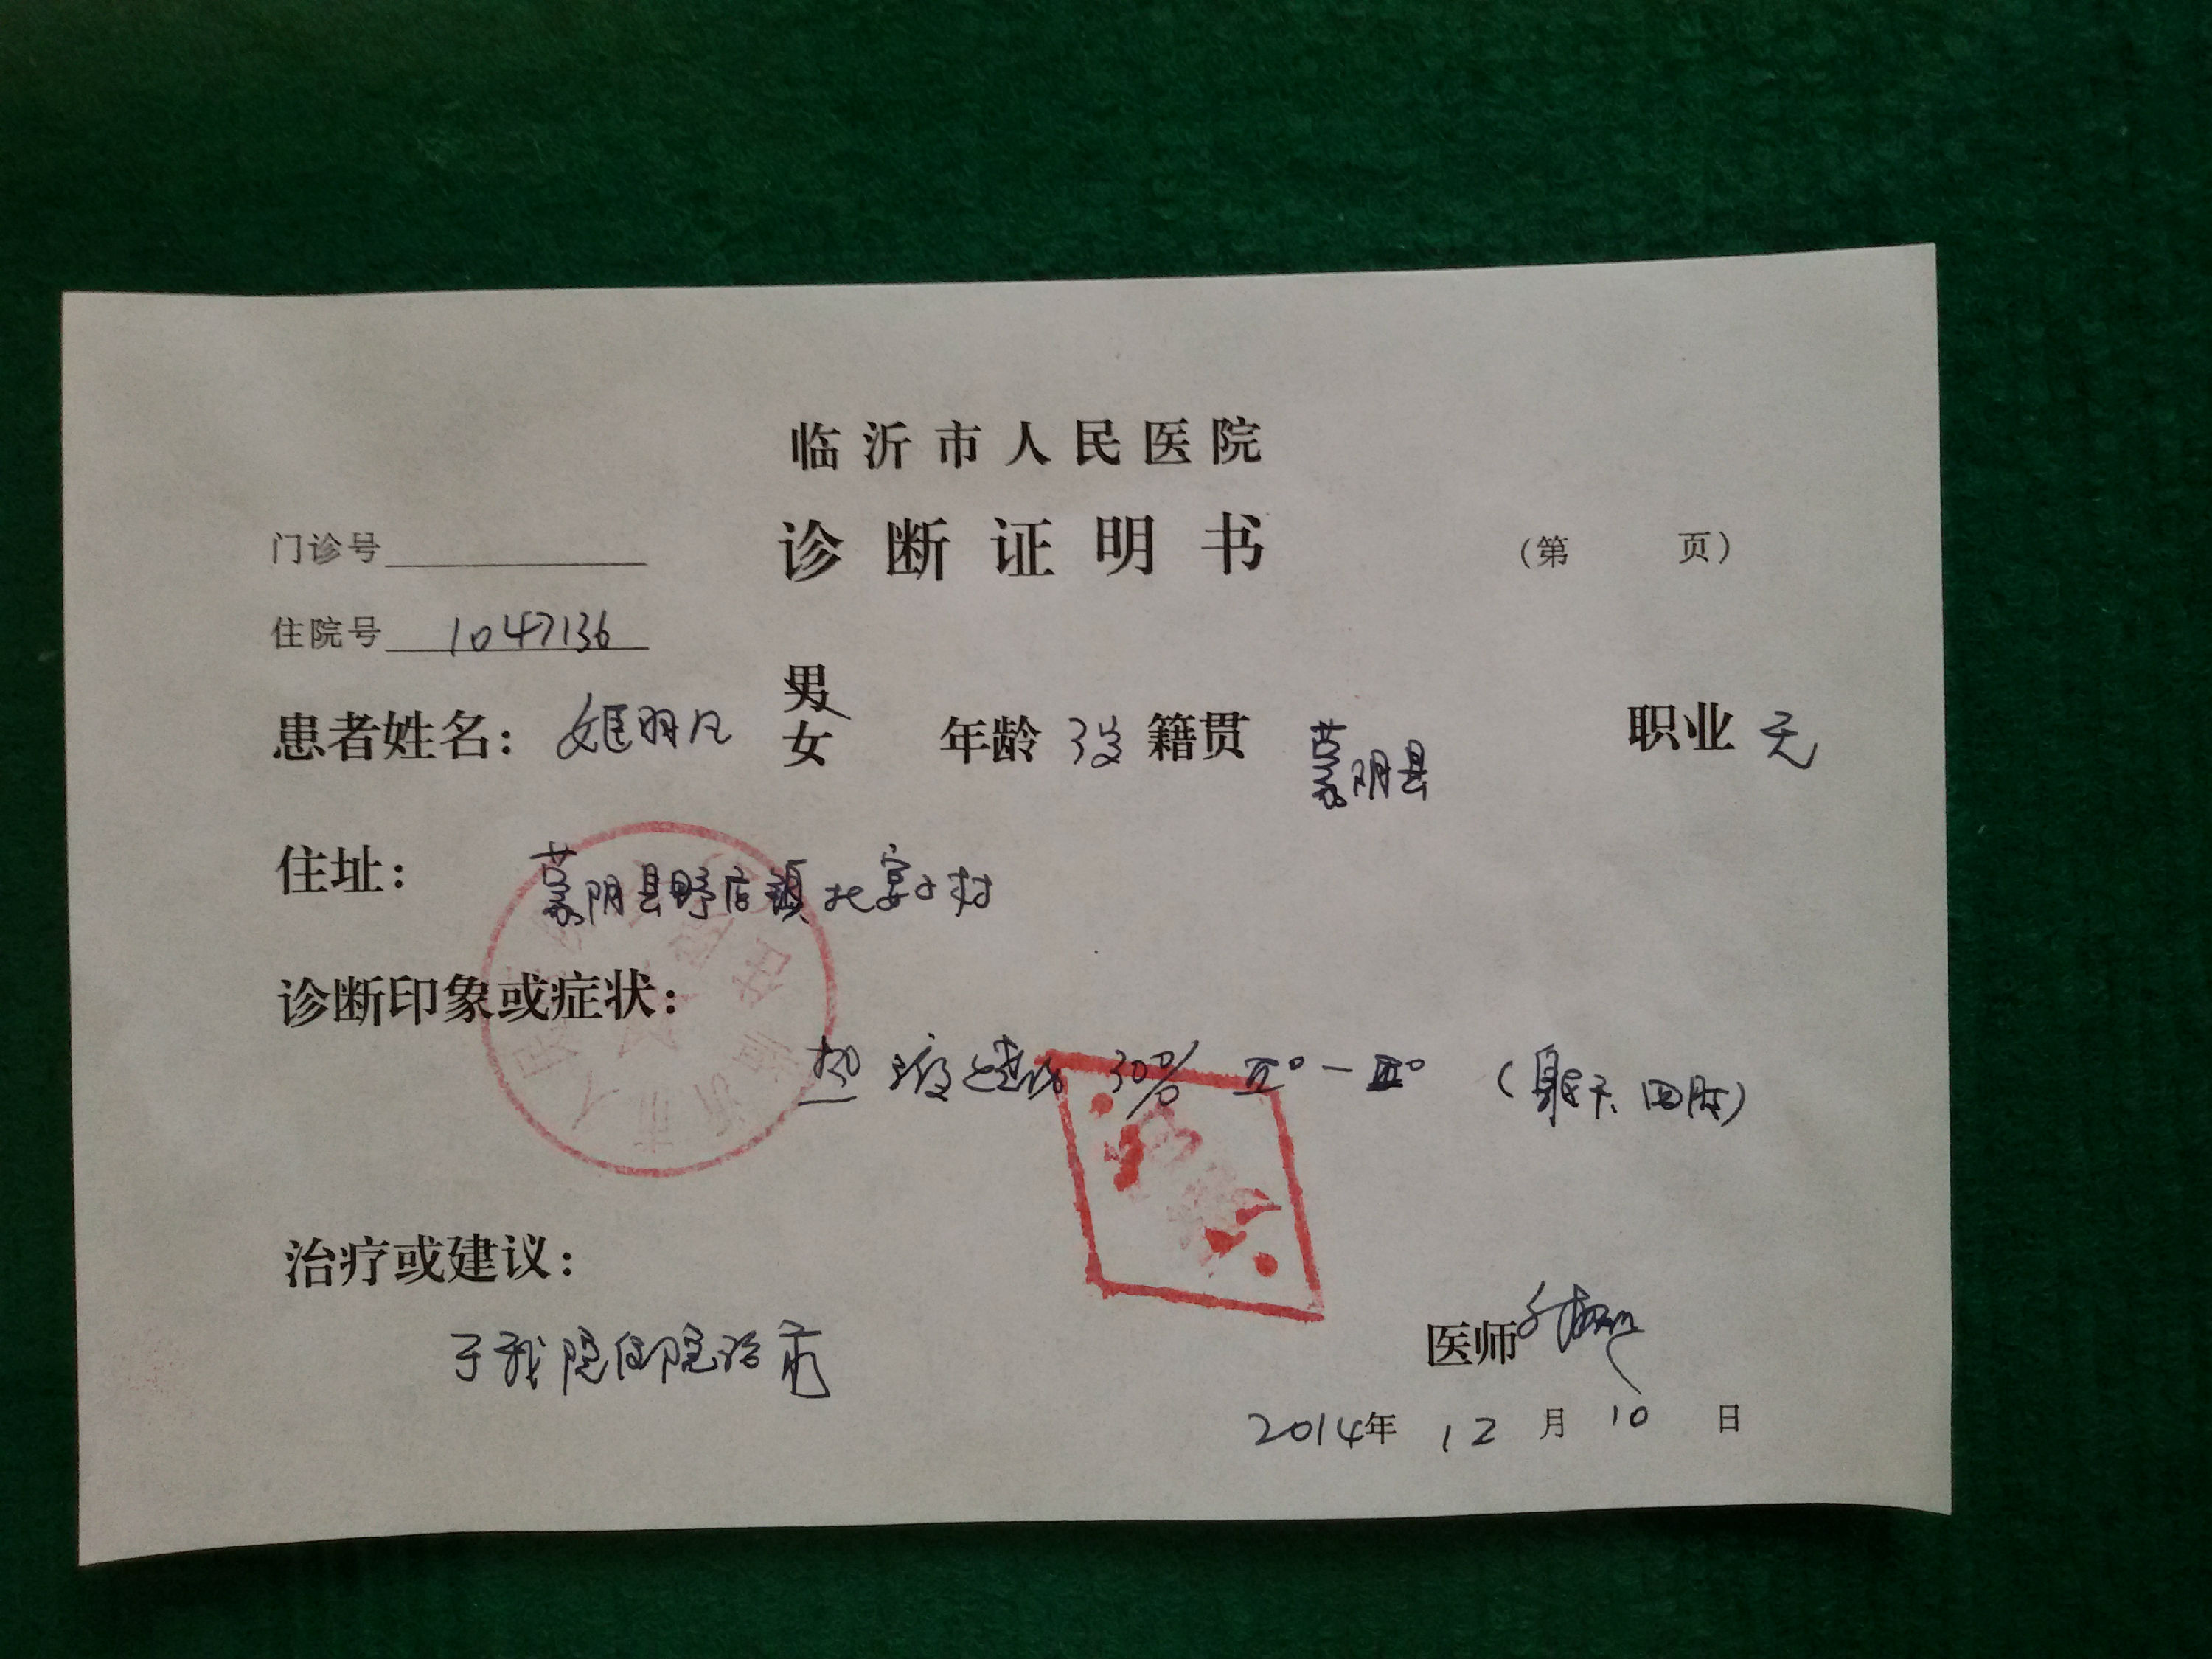 临沂市人民医院
诊断证明书
(第 页)
门诊号
住院号 1047136
患者姓名： 姬明凡 男 女 年龄 3岁 籍贯 蒙阴县 职业 无
住址： 蒙阴县野店镇北宴子村
诊断印象或症状：
30% Ⅱ°-Ⅲ° ( 四肢)
治疗或建议：
于我院住院治疗
医师
2014年 12 月 10 日